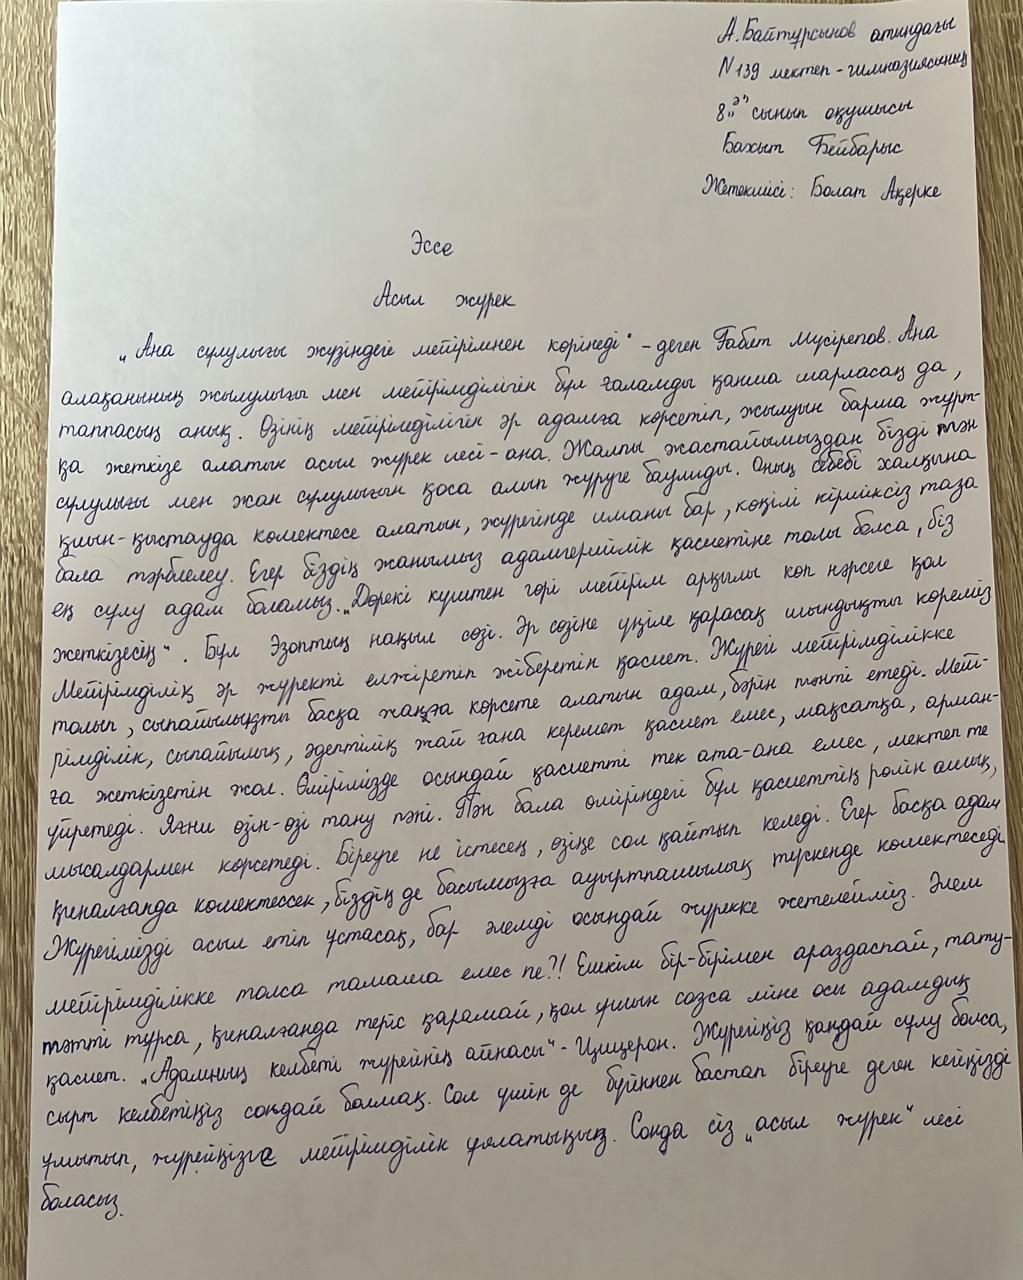 А.Байтұрсынов атындағы
N139 мектеп-гимназиясының
8 "ә" сынып оқушысы
Бахыт Бейбарыс
Жетекшісі: Болат Ақерке
Эссе
Асыл жүрек
„Ана сұлулығы жүзіндегі мейірімнен көрінеді" - деген Ғабит Мүсірепов. Ана
алақанының жылулығы мен мейірімділігін бұл ғаламды қанша шарласаң да,
таппасың анық. Өзінің мейірімділігін әр адамға көрсетіп, жылуын барша жұрт-
қа жеткізе алатын асыл жүрек иесі - ана. Жалпы жастайымыздан бізді тән
сұлулығы мен жан сұлулығын қоса алып жүруге баулиды. Оның себебі халқына
қиын-қыстауда көмектесе алатын, жүрегінде иманы бар, көңілі кіршіксіз таза
бала тәрбиелеу. Егер біздің жанымыз адамгершілік қасиетіне толы болса, біз
ең сұлу адам боламыз. „Дөрекі күштен гөрі мейірім арқылы көп нәрсеге қол
жеткізесің". Бұл Эзоптың нақыл сөзі. Әр сөзіне үңіле қарасақ шындықты көреміз
Мейірімділік әр жүректі елжіретіп жіберетін қасиет. Жүрегі мейірімділікке
толып, сыпайылықты басқа жанға көрсете алатын адам, бәрін тәнті етеді. Мейі-
рімділік, сыпайылық, әдептілік жай ғана керемет қасиет емес, мақсатқа, арман-
ға жеткізетін жол. Өмірімізде осындай қасиетті тек ата-ана емес, мектеп те
үйретеді. Яғни өзін-өзі тану пәні. Пән бала өміріндегі бұл қасиеттің рөлін ашық,
мысалдармен көрсетеді. Біреуге не істесең, өзіңе сол қайтып келеді. Егер басқа адам
қиналғанда көмектессек, біздің де басымызға ауыртпашылық түскенде көмектеседі
Жүрегімізді асыл етіп ұстасақ, бар әлемді осындай жүрекке жетелейміз. Әлем
мейірімділікке толса тамаша емес пе?! Ешкім бір-бірімен араздаспай, тату-
тәтті тұрса, қиналғанда теріс қарамай, қол ұшын созса міне осы адамдық
қасиет. „Адамның келбеті жүрегінің айнасы" - Цицерон. Жүрегіңіз қандай сұлу болса,
сырт келбетіңіз сондай болмақ. Сол үшін де бүгіннен бастап біреуге деген кегіңізді
ұмытып, жүрегіңізге мейірімділік ұялатыңыз. Сонда сіз „асыл жүрек" иесі
боласыз.